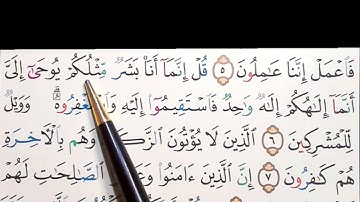 فَاعْمَلْ إِنَّنَا عَامِلُونَ ٥ قُلْ إِنَّمَآ أَنَا۠ بَشَرٌ مِّثْلُكُمْ يُوحَىٰٓ إِلَيَّ
أَنَّمَآ إِلَٰهُكُمْ إِلَٰهٌ وَٰحِدٌ فَاسْتَقِيمُوٓا۟ إِلَيْهِ وَوَيْلٌ
لِّلْمُشْرِكِينَ ٦ الَّذِينَ لَا يُؤْتُونَ وَهُم بِالْءَاخِرَةِ
هُمْ كَٰفِرُونَ ٧ إِنَّ الَّذِينَ ءَامَنُوا۟ الصَّٰلِحَٰتِ لَهُمْ